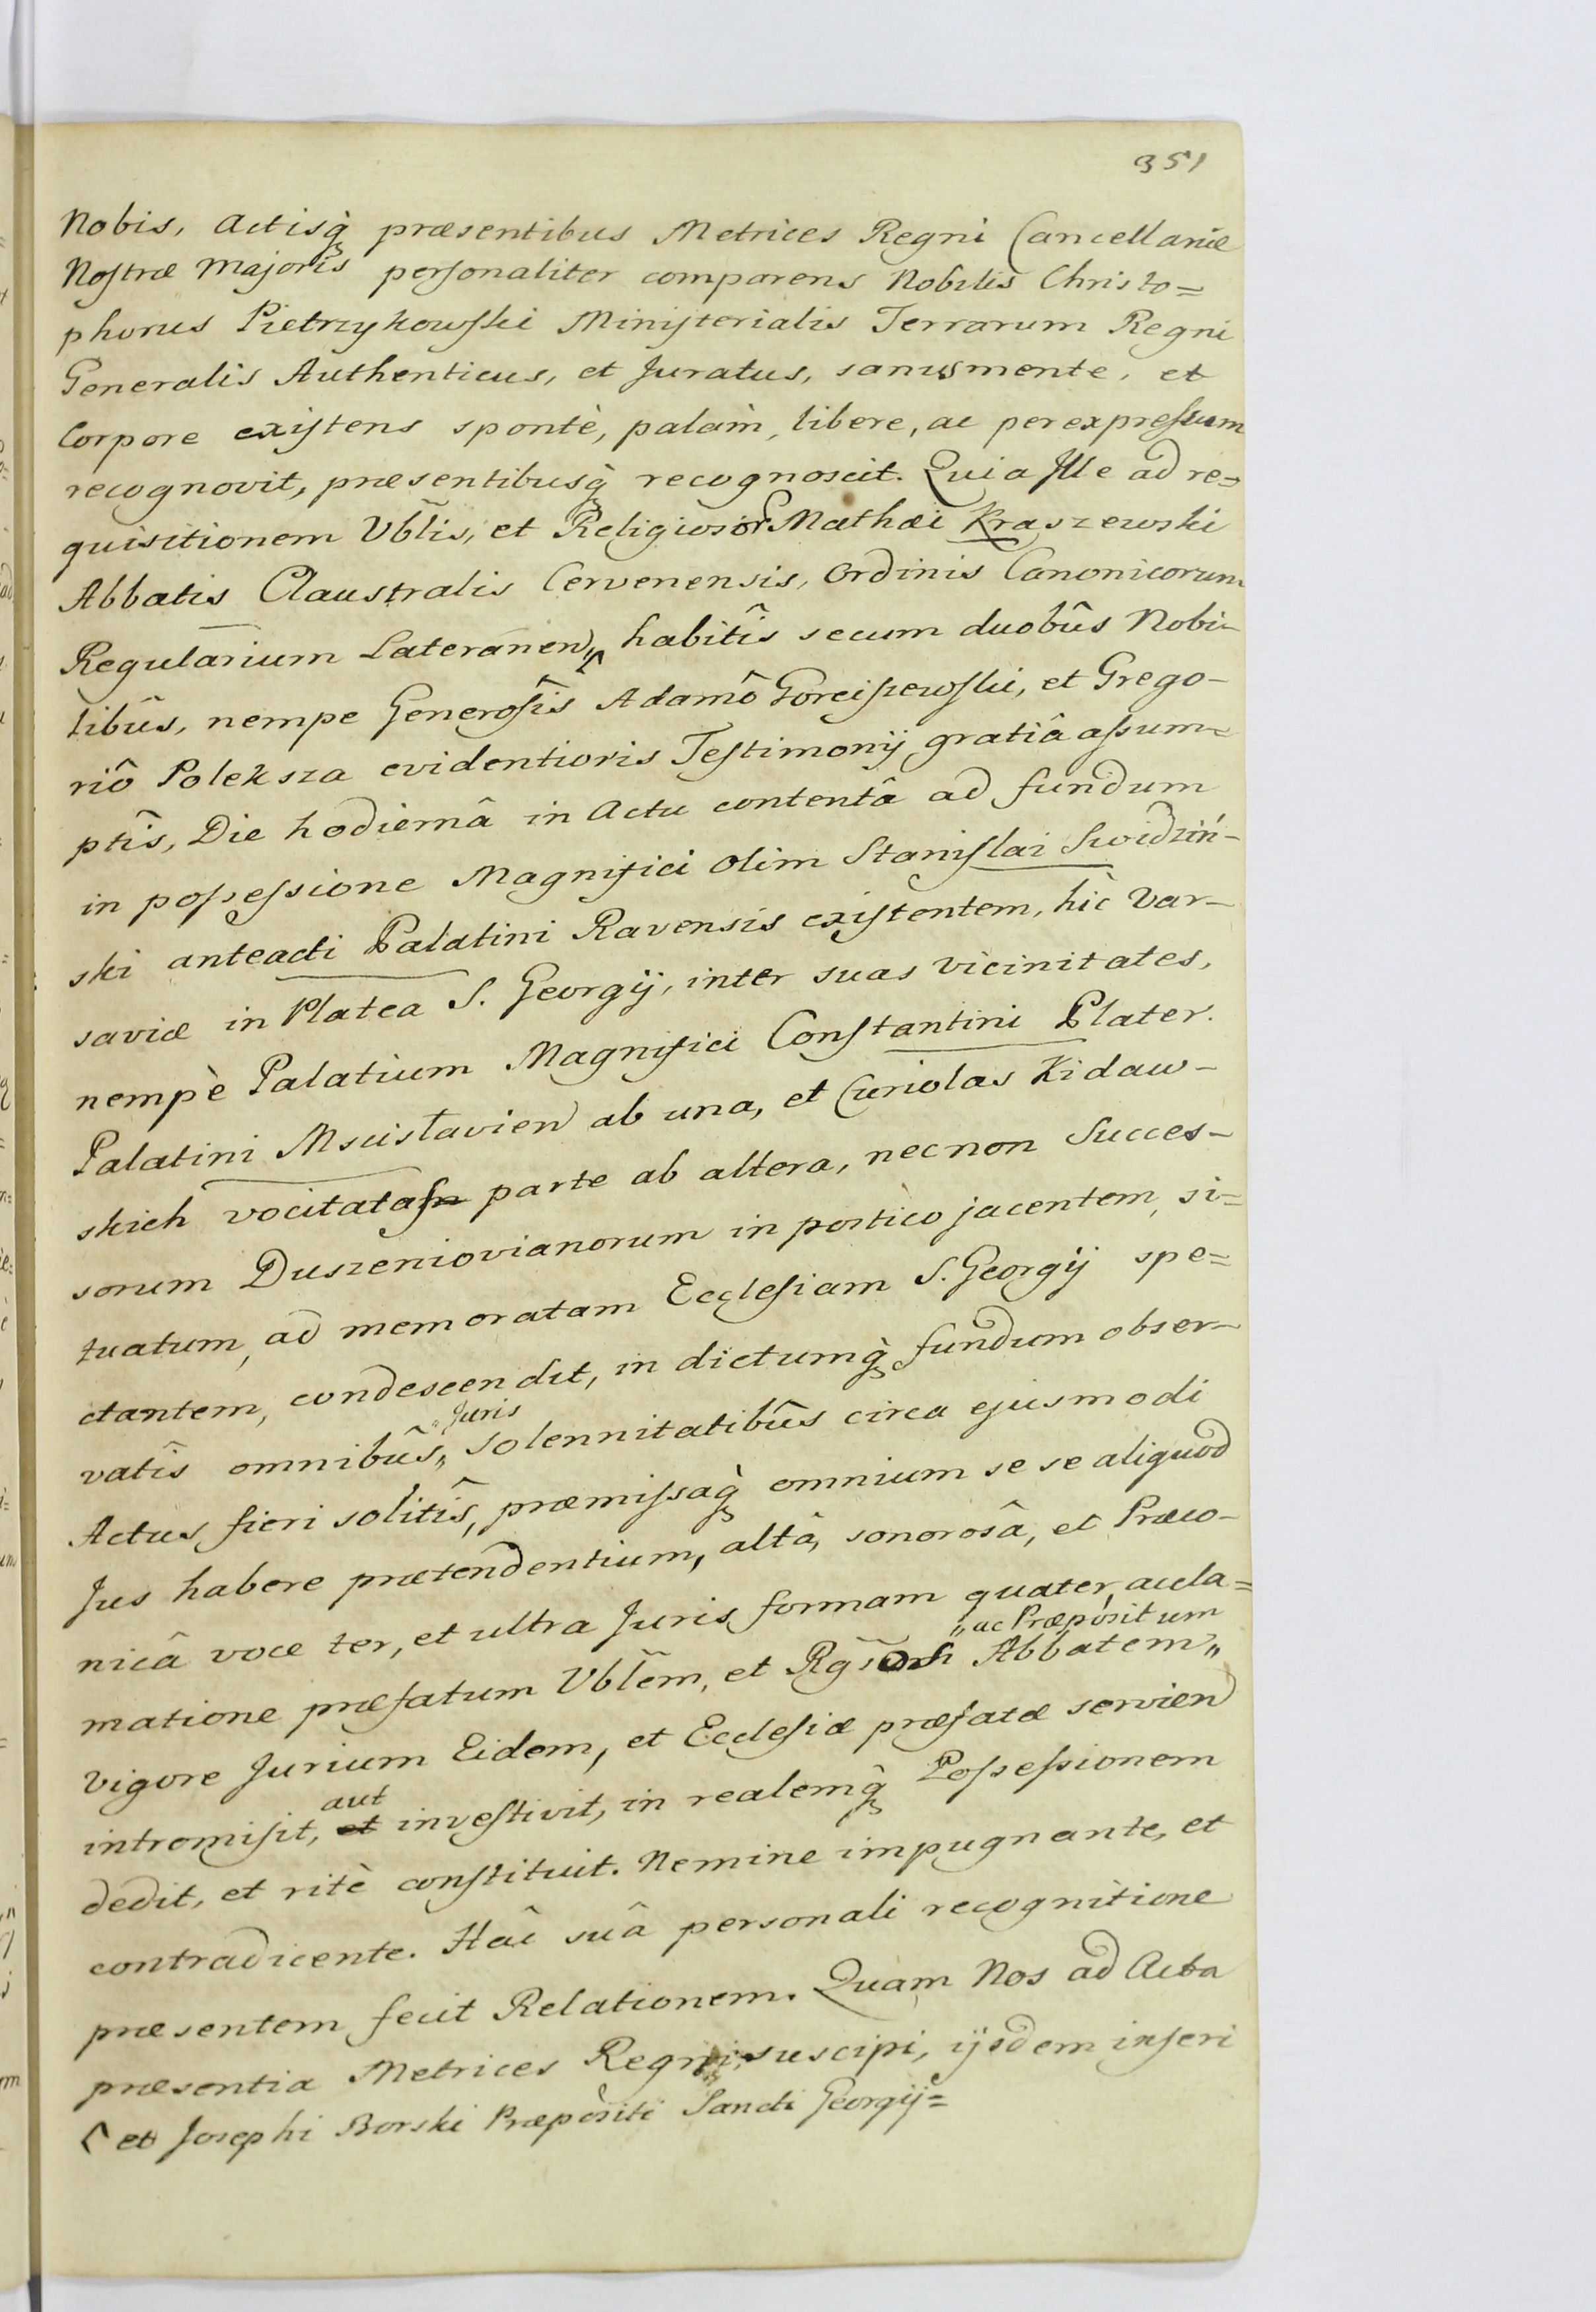 351
Nobis, Actisq̀ præsentibus Metrices Regni Cancellariæ
Nostræ Majoris personaliter comparens Nobilis Christo=
phorus Pietrzykowski Ministerialis Terrarum Regni
Generalis Authenticus, et Juratus, sanus mente, et
Corpore existens spontè, palàm, libere, ac per expressum
recognovit, præsentibusq̀ recognoscit. Quia Ille ad re=
quisitionem Vb̃lis, et Religiosor Mathæi Kraszewski
Abbatis Claustralis Cervenensis, Ordinis Canonicorum
Regularium Lateranen, habitîs secum duobûs Nobi-
libûs, nempe Generosîs Adamô Gorciszewski, et Grego-
riô Poleksza evidentioris Testimonij gratiâ assum=
ptîs, Die hodiernâ in Actu contentâ ad fundum
in possessione Magnifici olim Stanislai Swidziń-
ski anteacti Palatini Ravensis existentem, hìc Var-
saviæ in Platea S. Georgij, inter suas vicinitates,
nempè Palatium Magnifici Constantini Plater.
Palatini Mscislavien ab una, et Curiolas Kidaw-
skich vocitatas parte ab altera, necnon Succes-
sorum Duszeniovianorum in portico jacentem, si=
tuatum, ad memoratam Ecclesiam S. Georgij spe=
ctantem, condescendit, in dictumq̀ fundum obser-
„Juris
vatîs omnibûs„ solennitatibûs circa ejusmodi
Actus fieri solitîs, præmissaq̀ omnium se se aliquod
Jus habere prætendentium, altâ, sonorosâ, et Præco-
nicâ voce ter, et ultra Juris formam quater, accla=
„ac Præpositum
matione præfatum Vb̃lem, et Rg̃sos Abbatem„
vigore Jurium Eidem, et Ecclesiæ præfatæ servien
aut
intromisit, et investivit, in realemq̀ Possessionem
dedit, et ritè constituit. Nemine impugnante, et
contradicente. Hâc suâ personali recognitione
præsentem fecit Relationem. Quam Nos ad Acta
præsentia Metrices Regni suscipi, ijsdem inseri
et Josephi Borski Præpositi Sancti Georgij=